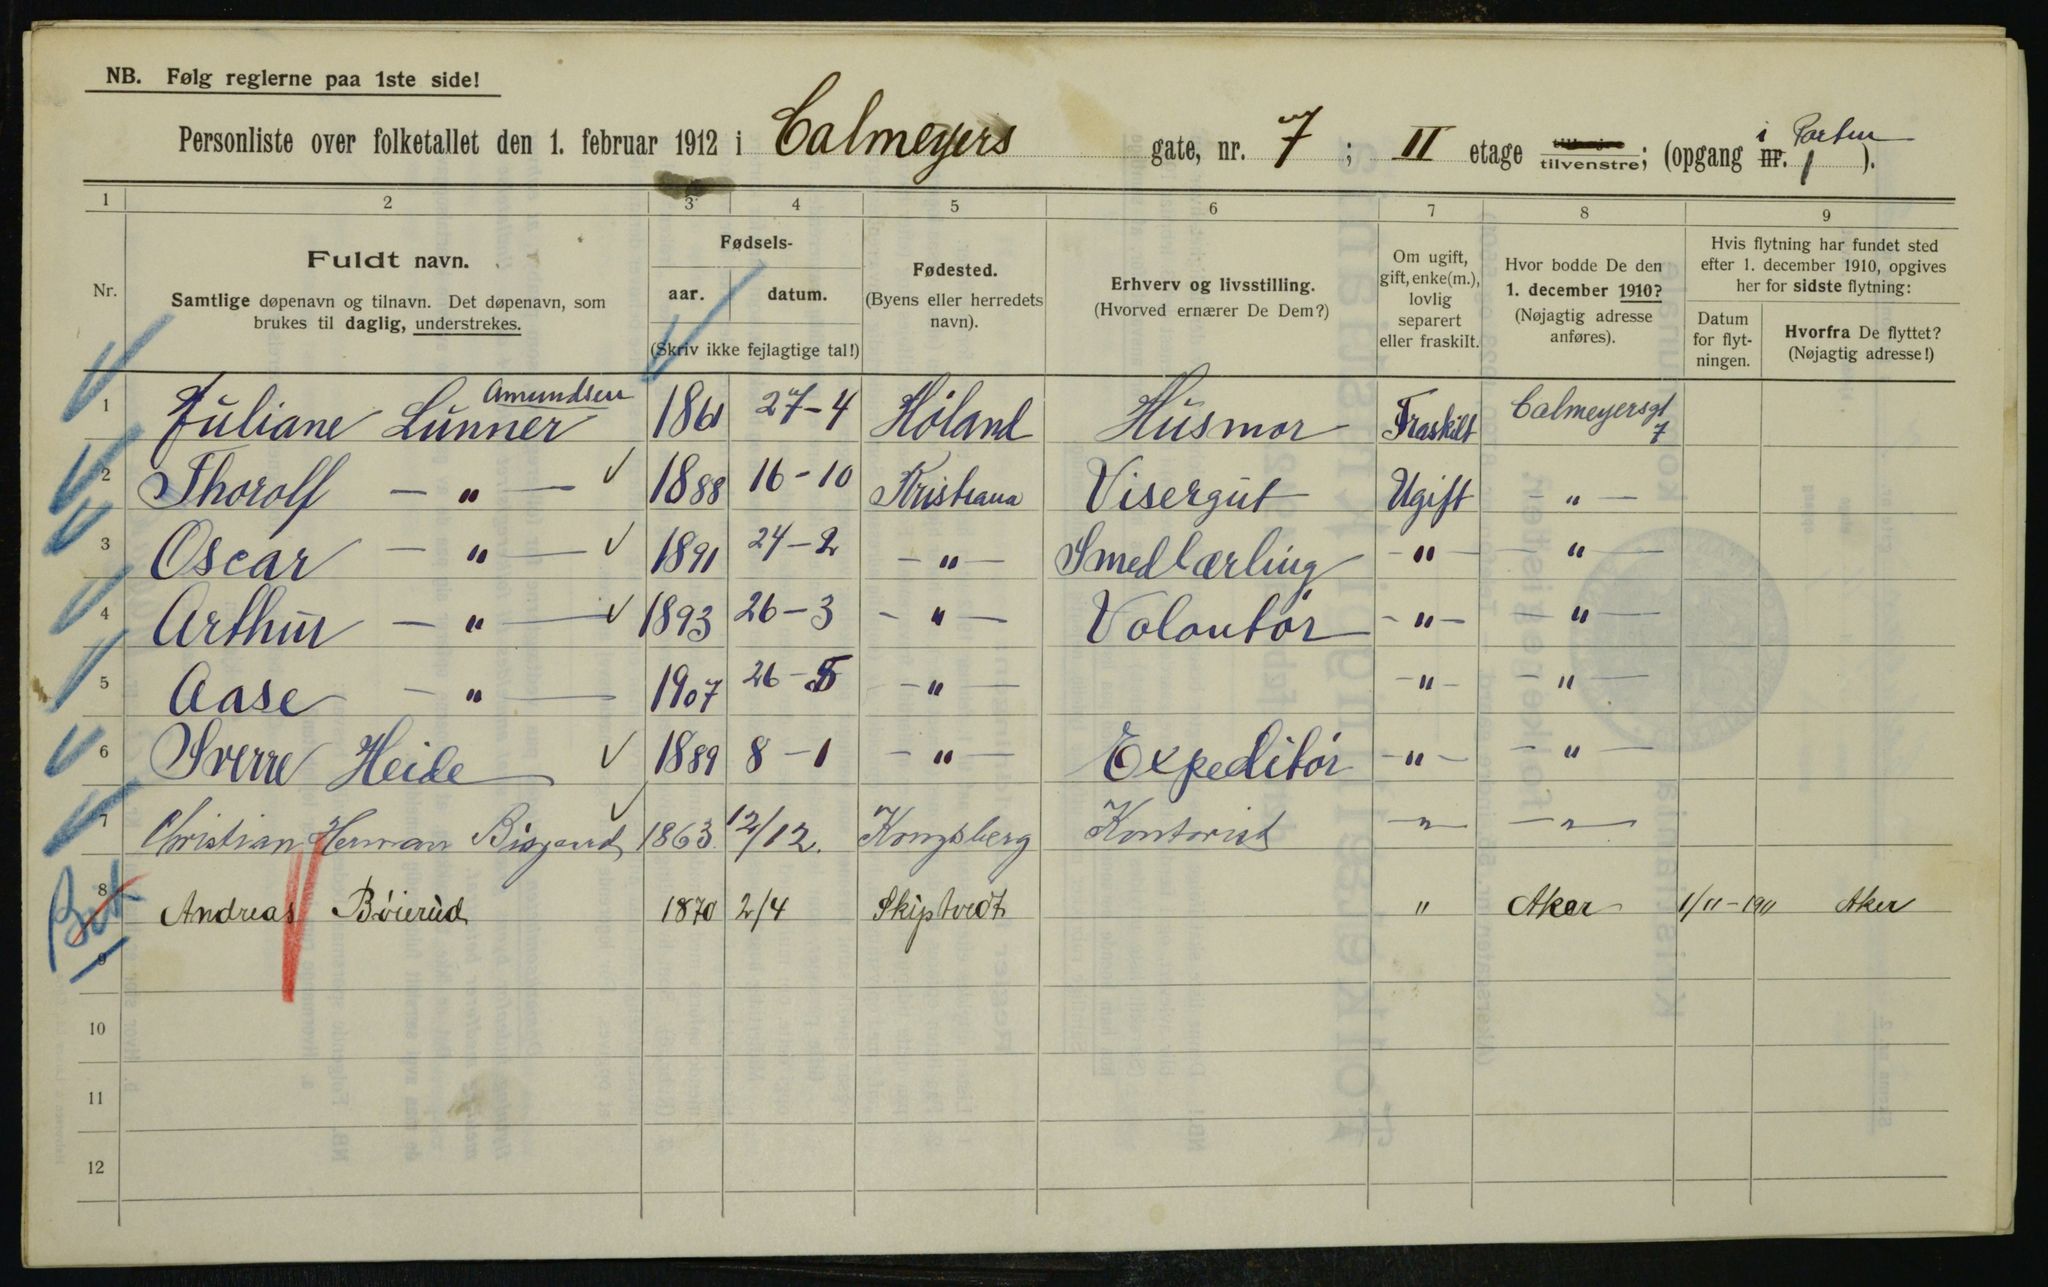 NB. Følg reglerne paa 1ste side!
Personliste over folketallet den 1. februar 1912 i Calmeyers gate, nr. 7; II etage tilvenstre; (opgang nr. i Porten 1).
1 2 3 4 5 6 7 8 9
Nr.
Fuldt navn.
Samtlige døpenavn og tilnavn. Det døpenavn, som
brukes til daglig, understrekes.
Fødsels-
aar. datum.
(Skriv ikke fejlagtige tal!)
Fødested.
(Byens eller herredets
navn).
Erhverv og livsstilling.
(Hvorved ernærer De Dem?)
Om ugift,
gift, enke(m.),
lovlig
separert
eller fraskilt.
Hvor bodde De den
1. december 1910?
(Nøjagtig adresse
anføres).
Hvis flytning har fundet sted
efter 1. december 1910, opgives
her for sidste flytning:
Datum
for flyt-
ningen.
Hvorfra De flyttet?
(Nøjagtig adresse!)
Amundsen
1 Juliane Lunner 1861 27-4 Høland Husmor Fraskilt Calmeyersgt 7
2 Thorolf — " — 1888 16-10 Kristiana Visergut Ugift — " —
3 Oscar — " — 1891 24-2 — " — Smedlærling — " — — " —
4 Arthur — " — 1893 26-3 — " — Volontør — " — — " —
5 Aase — " — 1907 26-5 — " — — " — — " —
6 Sverre Heide 1889 8-1 — " — Expeditør — " — — " —
7 Christian Herman 1863 12/12. Kongsberg Kontorist — " — — " —
8 Andreas Bøierud 1870 2/4 Skiptvedt " Aker 1/11-1911 Aker
9
10
11
12